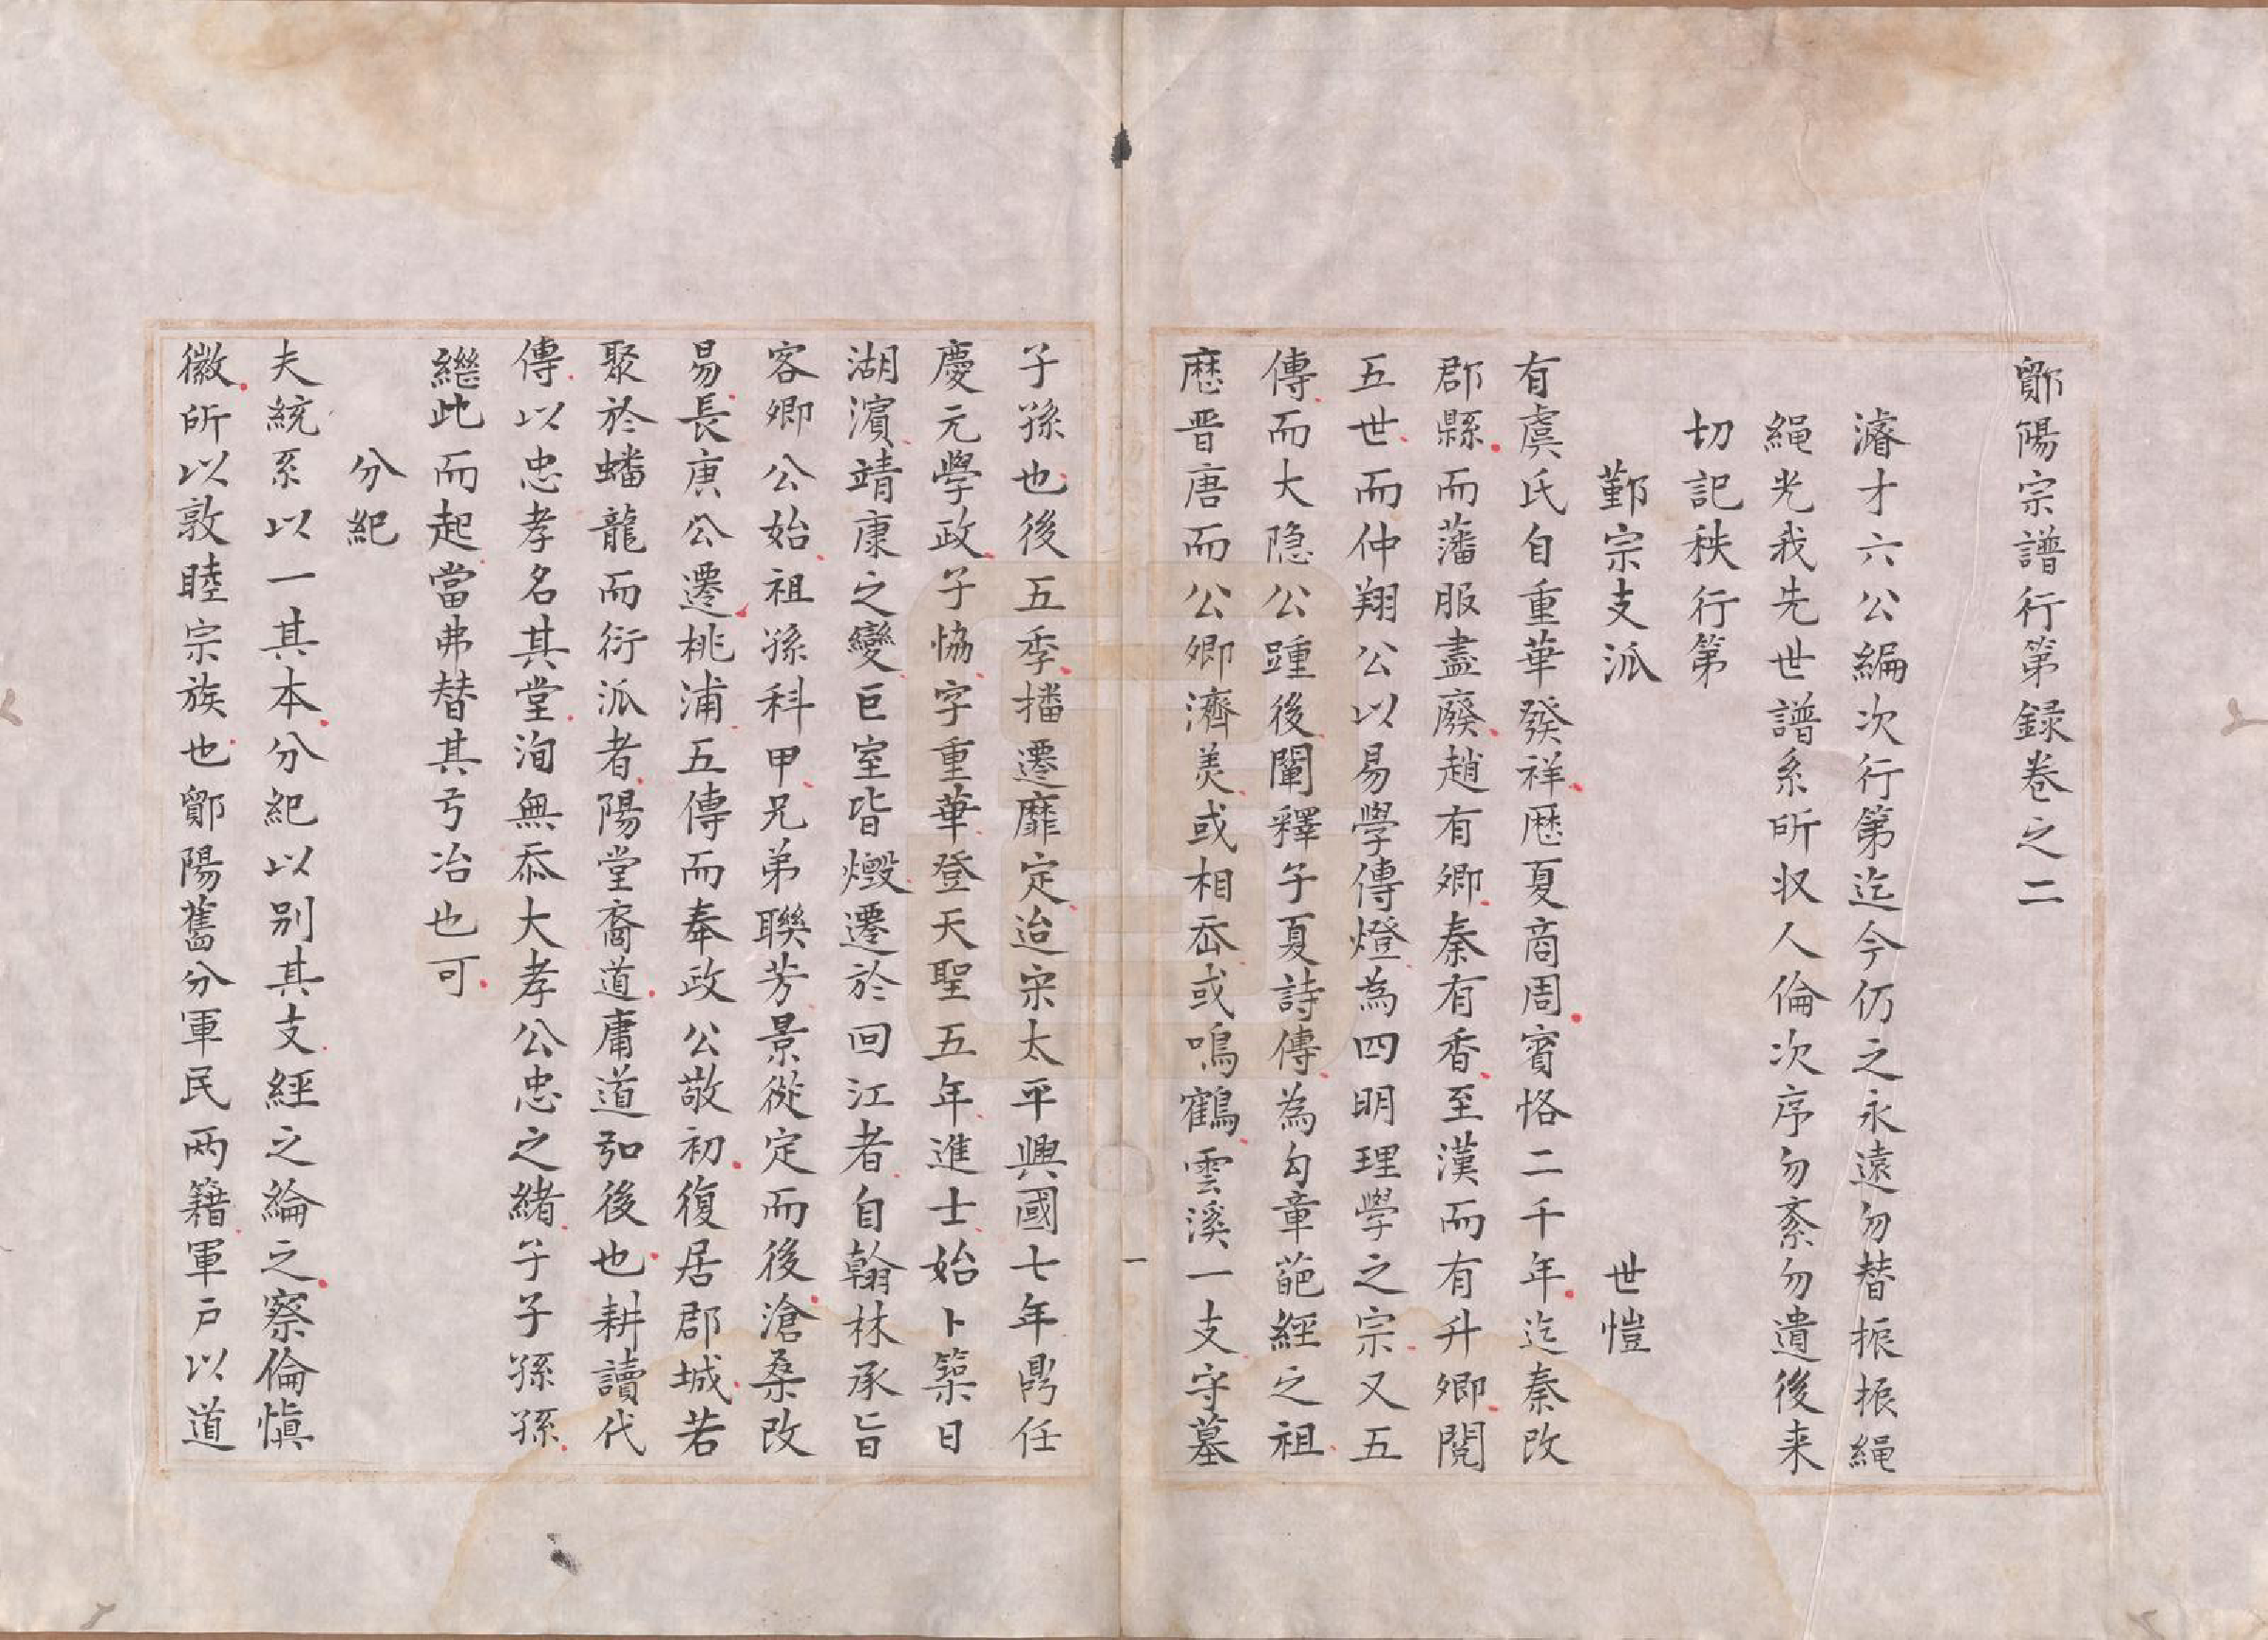 鄮陽宗譜行第録卷之二
濬才六公編次行第迄今仍之永遠勿替振振繩
繩光我先世譜系所収人倫次序勿紊勿遺後来
切記秩行第
鄞宗支派　世愷
有虞氏自重華發祥歴夏商周賓恪二千年迄秦改
郡縣而藩服盡廢趙有卿秦有香至漢而有升卿閲
五世而仲翔公以易學傳燈為四明理學之宗又五
傳而大隐公踵後闡釋子夏詩傳為勾章葩經之祖
歴晋唐而公卿濟美或相岙或鳴鶴雲溪一支守墓
一
子孫也後五季播遷靡定迨宋太平興國七年鼎任
慶元學政子恊字重華登天聖五年進士始卜築日
湖濵靖康之變巨室皆燬遷於回江者自翰林承旨
客卿公始祖孫科甲兄弟聯芳景從定而後滄桑改
易長庚公遷桃浦五傳而奉政公敬初復居郡城若
聚於蟠龍而衍派者陽堂裔道庸道弘後也耕讀代
傳以忠孝名其堂洵無忝大孝公忠之緒子子孫孫
繼此而起當弗替其弓冶也可
分紀
夫統系以一其本分紀以别其支經之綸之察倫慎
徽所以敦睦宗族也鄮陽舊分軍民两籍軍戶以道